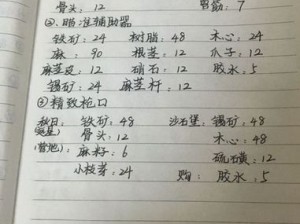 骨头：12 胃筋：7
②. 瞄准辅助器
铁矿：24 树脂：48 木心：24
麻：90 根茎：12 爪子：12
麻茎皮：12 硝石：12 胶水：5
锡矿：24 麻茎秆：12
③ 精致枪口
秋日： 铁矿：48 沙石堡：锡矿：48
骨头：12 木心：48
营地： 麻籽：6 硫磺：12
小枝芽：24 购：胶水：5